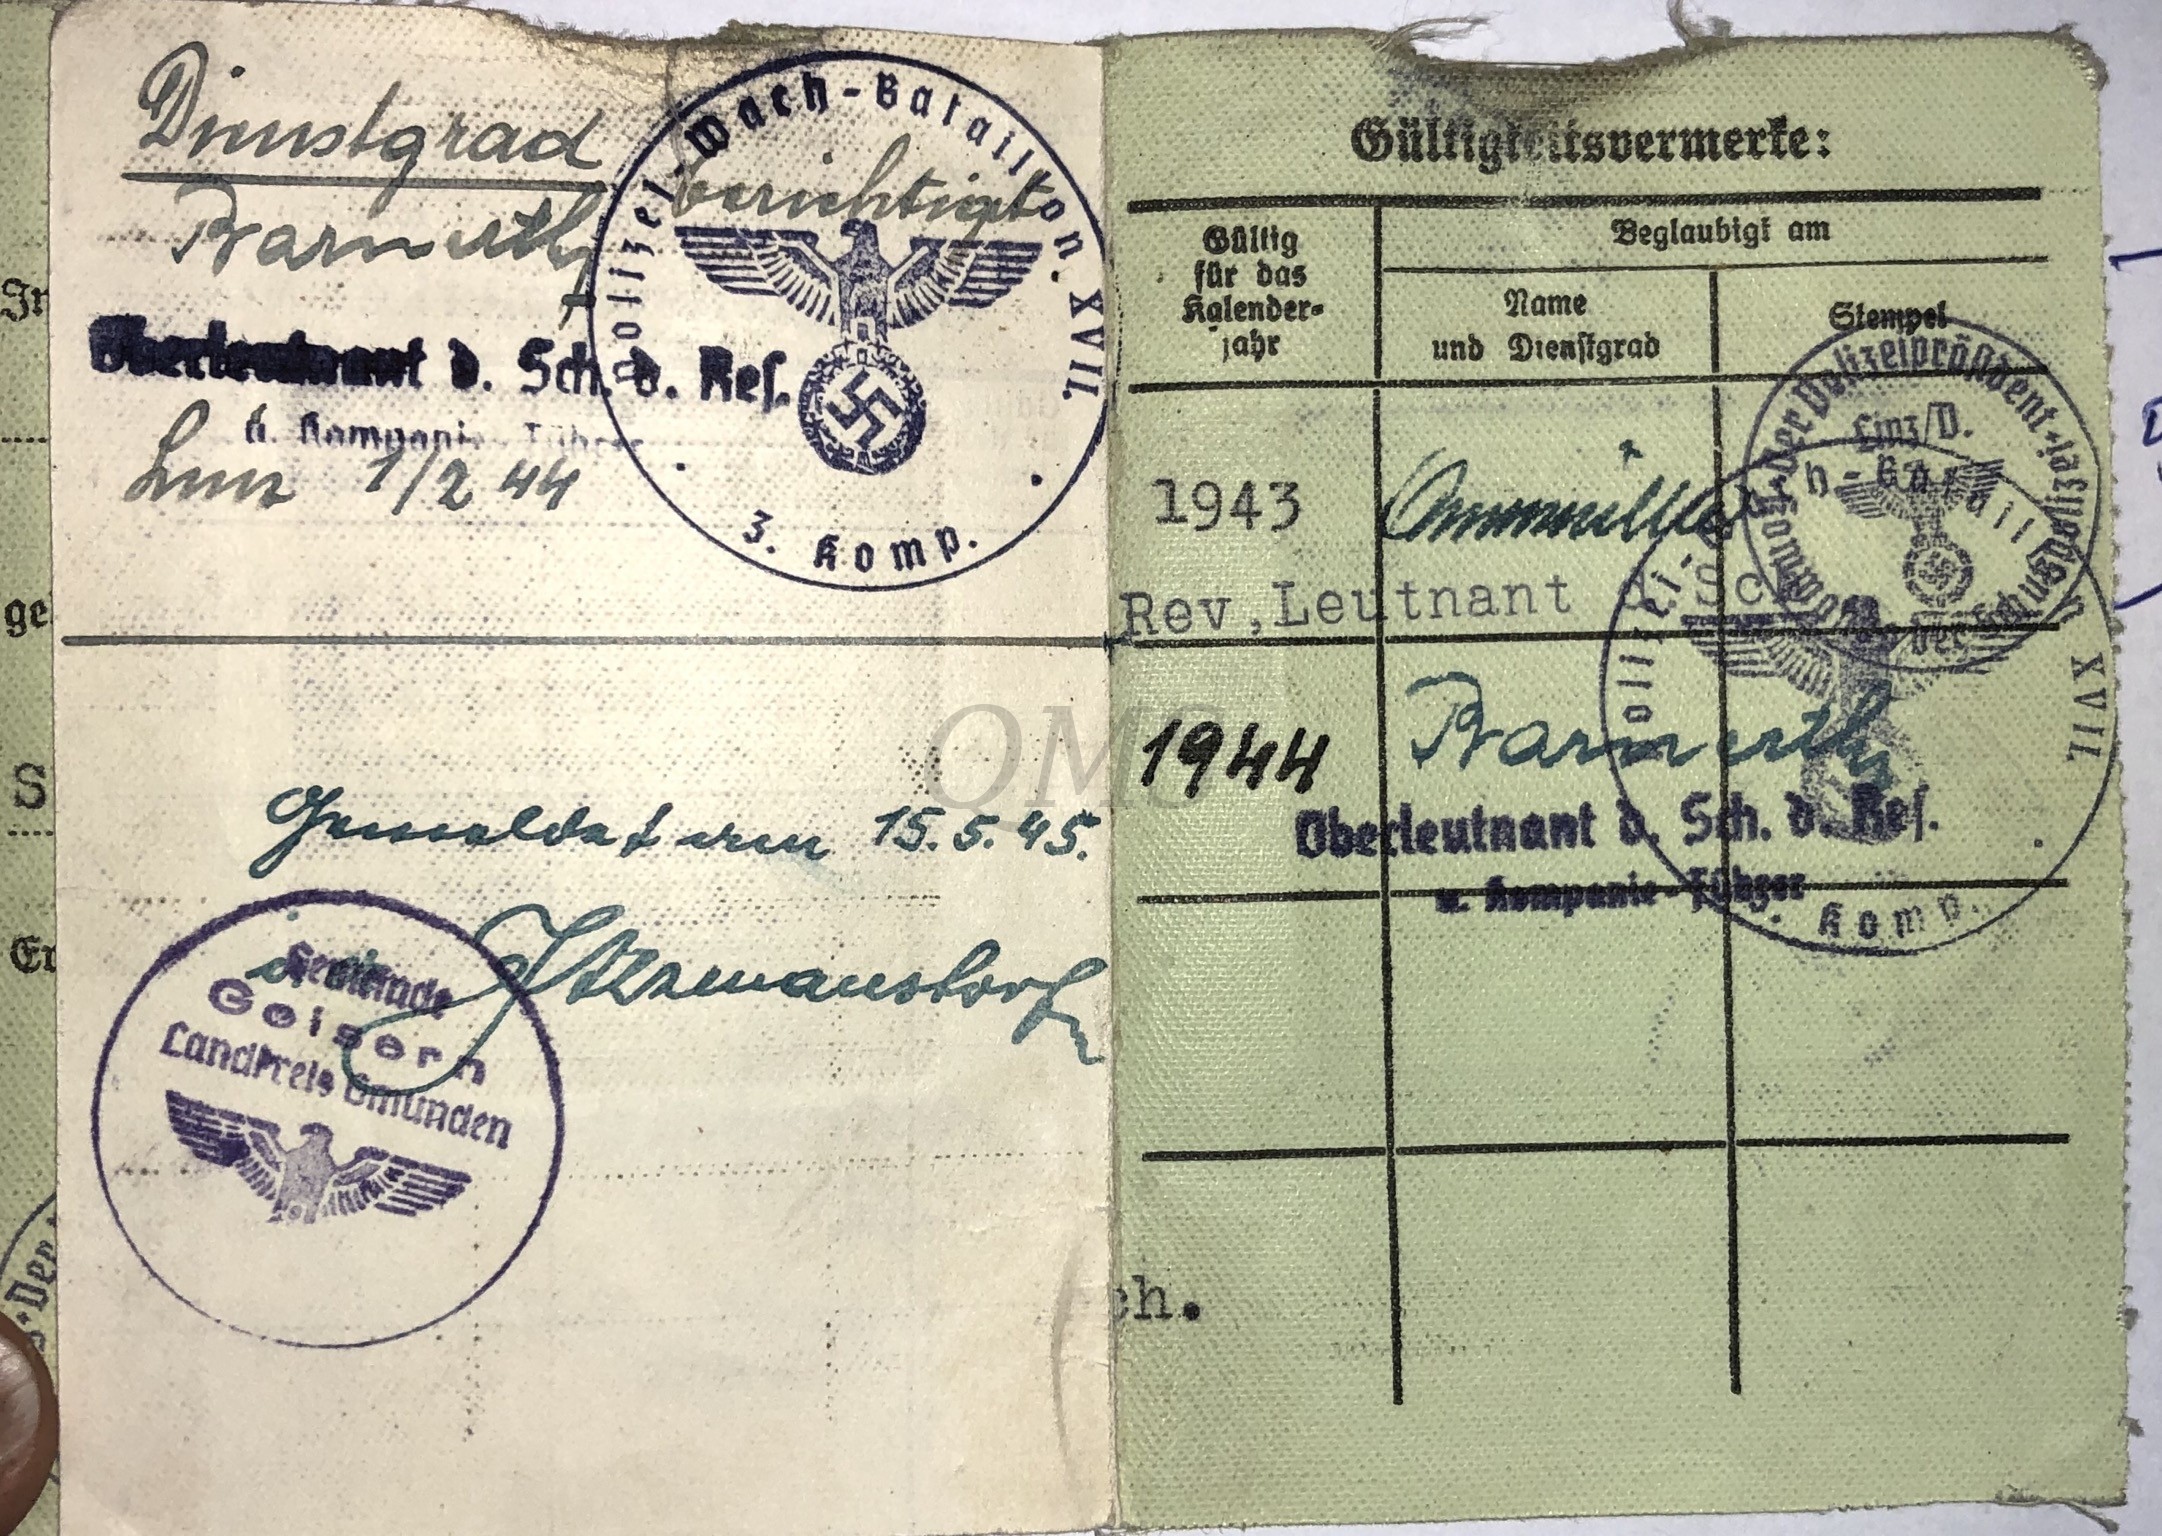 Dienstgrad
berichtigt
Polizei-Wach-Bataillon XVII
3. Komp.
Barnerth
Oberleutnant d. Sch. d. Res.
u. Kompanie-Führer
Linz 1/2 44
Gemeldet am 15.5.45.
Gemeinde
Goisern
Landkreis Gmunden
In
ge
S
Er
Der
QMS
Gültigkeitsvermerke:
Gültig
für das
Kalender-
jahr
Beglaubigt am
Name
und Dienstgrad
Stempel
Der Polizeipräsident
Linz/D.
Kommando der Schutzpolizei
1943
Rev,Leutnant d.Sch
1944 Barnerth
Oberleutnant d. Sch. d. Res.
u. Kompanie-Führer
Polizei-Wach-Bataillon XVII
Komp.
ch.